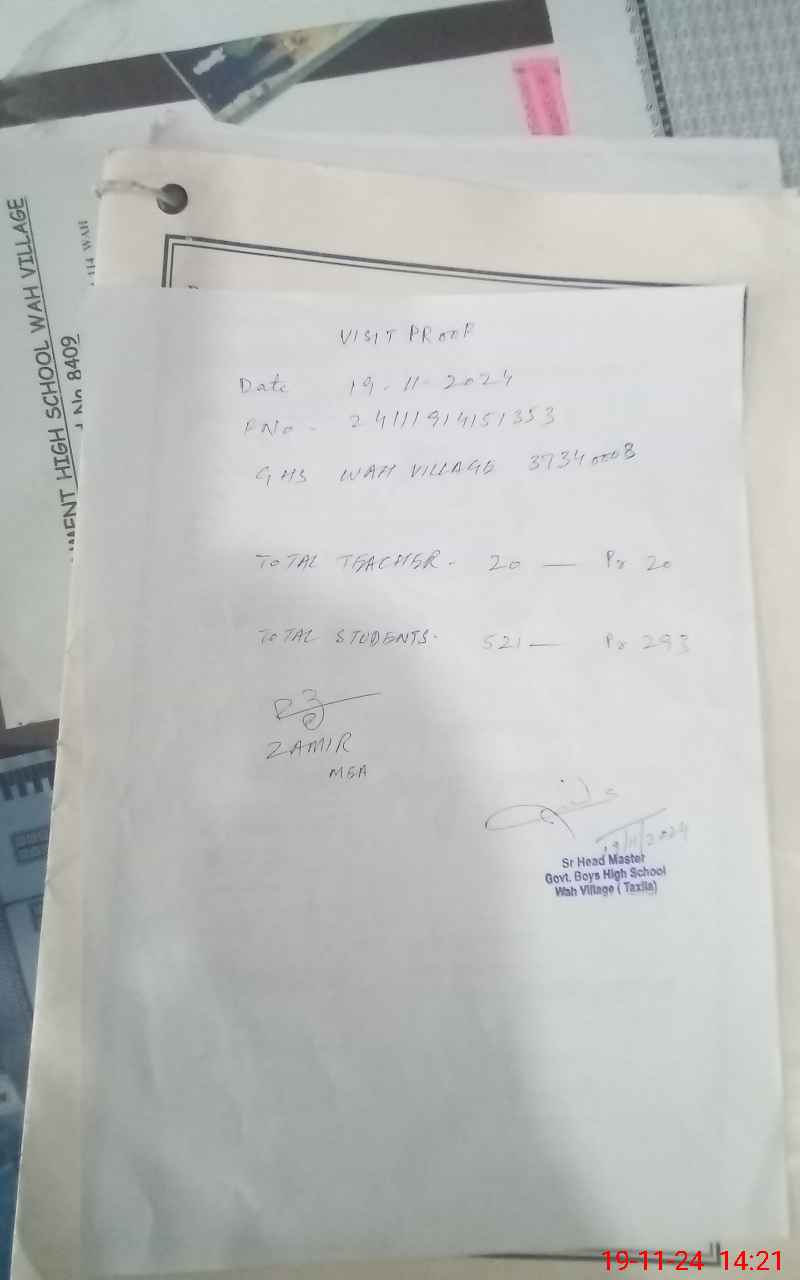 MENT HIGH SCHOOL WAH VILLAGE
No 8409
WAH
VISIT PROOF
Date 19-11-2024
PNo - 24111914151353
GHS WAH VILLAGE 37340003
TOTAL TEACHER - 20 — Pr 20
TOTAL STUDENTS - 521 — Pr 293
ZAMIR
MEA
19/11/2024
Sr Head Master
Govt. Boys High School
Wah Village ( Taxila)
19-11-24 14:21